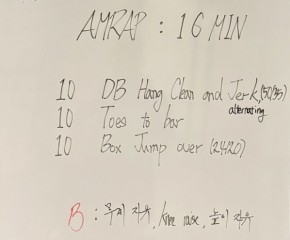 AMRAP : 16 MIN
10 DB Hang Clean and Jerk, (50/35)
alternating
10 Toes to bar
10 Box Jump over (24/20)
B : 무게 자유, knee raise, 높이 자유